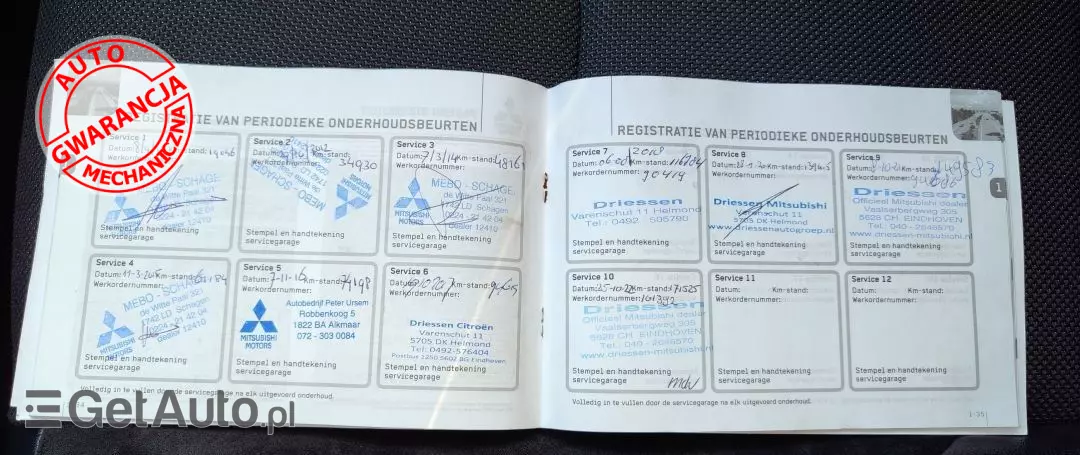 AUTO
GWARANCJA
MECHANICZNA
REGISTRATIE VAN PERIODIEKE ONDERHOUDSBEURTEN
Service 1
Datum: Km-stand: 19046
Werkordernummer:
de Witte Paal 321
0224 - 21 42 04
dealer 12410
Stempel en handtekening
servicegarage
Service 2
Datum: 2012 Km-stand: 34930
Werkordernummer:
MEBO - SCHAGEN
MITSUBISHI
MOTORS
Stempel en handtekening
servicegarage
Service 3
Datum: 7/3/14 Km-stand: 48161
Werkordernummer:
MEBO - SCHAGE.
de Witte Paal 321
1742 LD Schagen
0224 - 21 42 04
dealer 12410
MITSUBISHI
MOTORS
Stempel en handtekening
servicegarage
Service 4
Datum: 11-3-2015 Km-stand: 184
Werkordernummer:
MEBO - SCHAGEN
de Witte Paal 321
1742 LD Schagen
0224 - 21 42 04
dealer 12410
MITSUBISHI
MOTORS
Stempel en handtekening
servicegarage
Service 5
Datum: 7-11-16 Km-stand: 74198
Werkordernummer:
Autobedrijf Peter Ursem
Robbenkoog 5
1822 BA Alkmaar
072 - 303 0084
MITSUBISHI
MOTORS
Stempel en handtekening
servicegarage
Service 6
Datum: Km-stand: 94615
Werkordernummer:
Driessen Citroën
Varenschut 11
5705 DK Helmond
Tel: 0492-576404
Postbus 1250 5602 BG Eindhoven
Stempel en handtekening
servicegarage
Volledig in te vullen door de servicegarage na elk uitgevoerd onderhoud.
REGISTRATIE VAN PERIODIEKE ONDERHOUDSBEURTEN
Service 7
Datum: 06-08 2018 Km-stand: 116784
Werkordernummer: 90419
Driessen
Varenschut 11 Helmond
Tel.: 0492 - 505790
Stempel en handtekening
servicegarage
Service 8
Datum: Km-stand:
Werkordernummer:
Driessen Mitsubishi
Varenschut 11
5705 DK Helmond
www.driessenautogroep.nl
Stempel en handtekening
servicegarage
Service 9
Datum: Km-stand: 149583
Werkordernummer:
Driessen
Officieel Mitsubishi dealer
Vaalserbergweg 305
5628 CH EINDHOVEN
Tel.: 040 - 2646570
www.driessen-mitsubishi.nl
Stempel en handtekening
servicegarage
Service 10
Datum: 25-10-22 Km-stand: 171525
Werkordernummer: 101392
Driessen
Officieel Mitsubishi dealer
Vaalserbergweg 305
5628 CH. EINDHOVEN
Tel.: 040 - 2646570
www.driessen-mitsubishi.nl
Stempel en handtekening
servicegarage
Service 11
Datum: Km-stand:
Werkordernummer:
Stempel en handtekening
servicegarage
Service 12
Datum: Km-stand:
Werkordernummer:
Stempel en handtekening
servicegarage
Volledig in te vullen door de servicegarage na elk uitgevoerd onderhoud.
1-35
1
GetAuto.pl